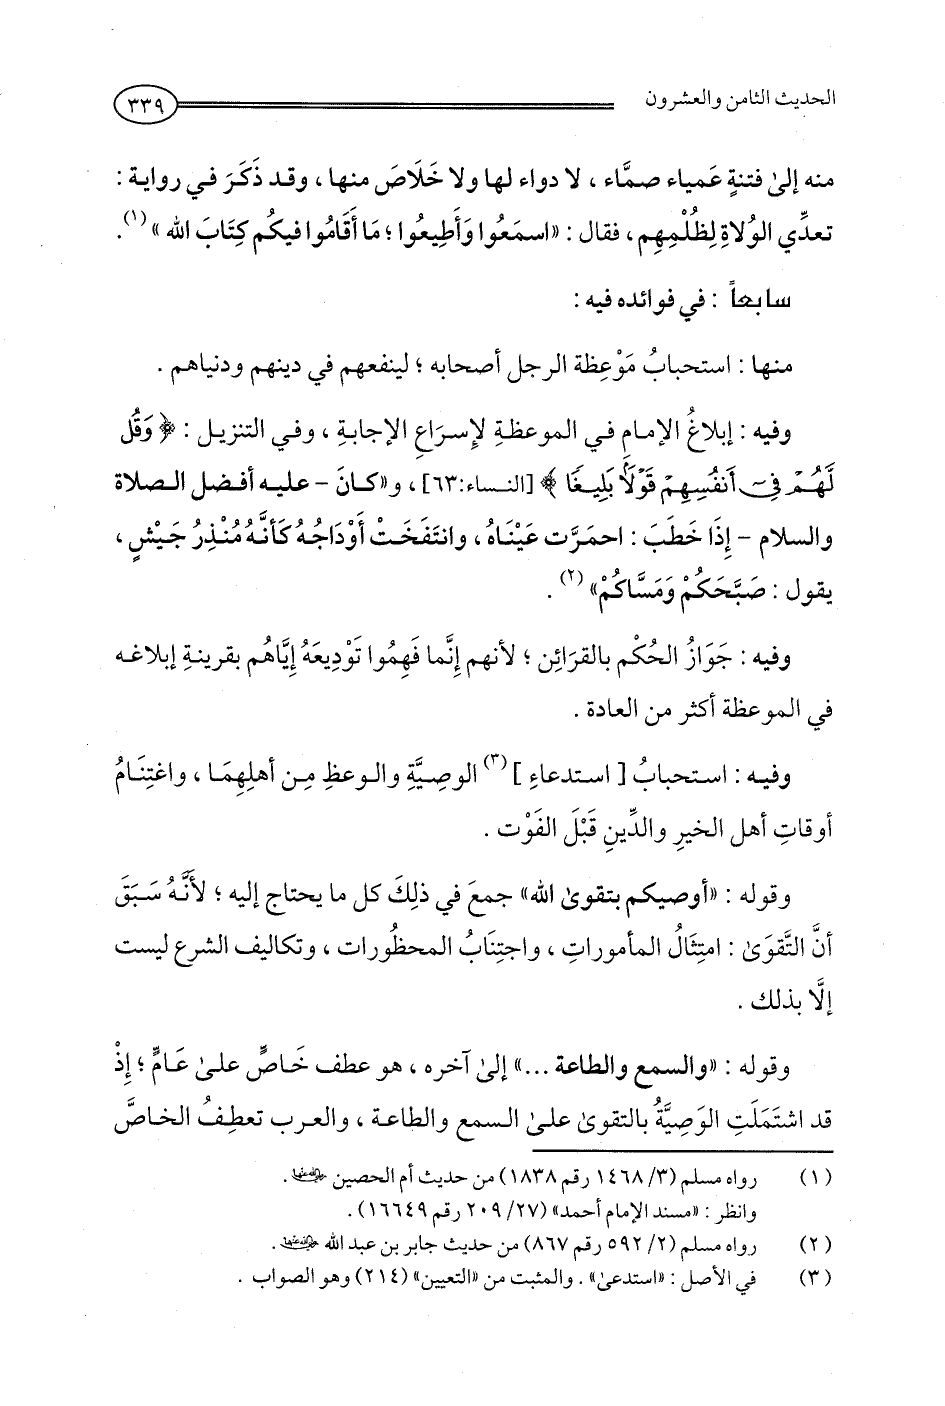 الحديث الثامن والعشرون ٣٣٩
منه إلىٰ فتنةٍ عَمياء صمَّاء ، لا دواء لها ولا خَلَاصَ منها ، وقد ذَكَرَ في رواية :
تعدِّي الوُلاةِ لِظُلْمِهِم ، فقال : «اسمَعُوا وَأَطِيعُوا ؛ مَا أَقَامُوا فيكُم كِتَابَ الله » (١) .
سابعاً : في فوائده فيه :
منها : استحبابُ مَوْعِظة الرجل أصحابه ؛ لينفعهم في دينهم ودنياهم .
وفيه : إبلاغُ الإمام في الموعظةِ لإسراعِ الإجابةِ ، وفي التنزيل : ﴿ وَقُل
لَّهُمْ فِىٓ أَنفُسِهِمْ قَوْلًا بَلِيغًا ﴾ [النساء:٦٣] ، و«كانَ – عليه أفضل الصلاة
والسلام – إذَا خَطَبَ : احمَرَّت عَيْنَاهُ ، وانتَفَخَتْ أَوْدَاجُهُ كَأنَّهُ مُنْذِرُ جَيْشٍ ،
يقول : صَبَّحَكُمْ وَمَسَّاكُمْ» (٢) .
وفيه : جَوَازُ الحُكْم بالقرَائِن ؛ لأنهم إنَّما فَهِمُوا تَوْدِيعَهُ إيَّاهُم بقرينةِ إبلاغه
في الموعظة أكثر من العادة .
وفيه : استحبابُ [ استدعاءِ ] (٣) الوصِيَّةِ والوعظِ مِن أهلِهِمَا ، واغتِنَامُ
أوقاتِ أهل الخيرِ والدِّينِ قَبْلَ الفَوْت .
وقوله : «أوصيكم بتقوىٰ الله» جمعَ في ذلِكَ كل ما يحتاج إليه ؛ لأَنَّهُ سَبَقَ
أنَّ التَّقوَىٰ : امتِثَالُ المأموراتِ ، واجتِنَابُ المحظُورات ، وتكاليف الشرع ليست
إلَّا بذلك .
وقوله : «والسمع والطاعة ...» إلىٰ آخره ، هو عطف خَاصٍّ علىٰ عَامٍّ ؛ إذْ
قد اشتَمَلَتِ الوَصِيَّةُ بالتقوىٰ علىٰ السمع والطاعة ، والعرب تعطِفُ الخاصَّ
(١) رواه مسلم (٣/ ١٤٦٨ رقم ١٨٣٨) من حديث أم الحصين رضي الله عنها .
وانظر : «مسند الإمام أحمد» (٢٧/ ٢٠٩ رقم ١٦٦٤٩) .
(٢) رواه مسلم (٢/ ٥٩٢ رقم ٨٦٧) من حديث جابر بن عبد الله رضي الله عنهما .
(٣) في الأصل : «استدعىٰ» . والمثبت من «التعيين» (٢١٤) وهو الصواب .